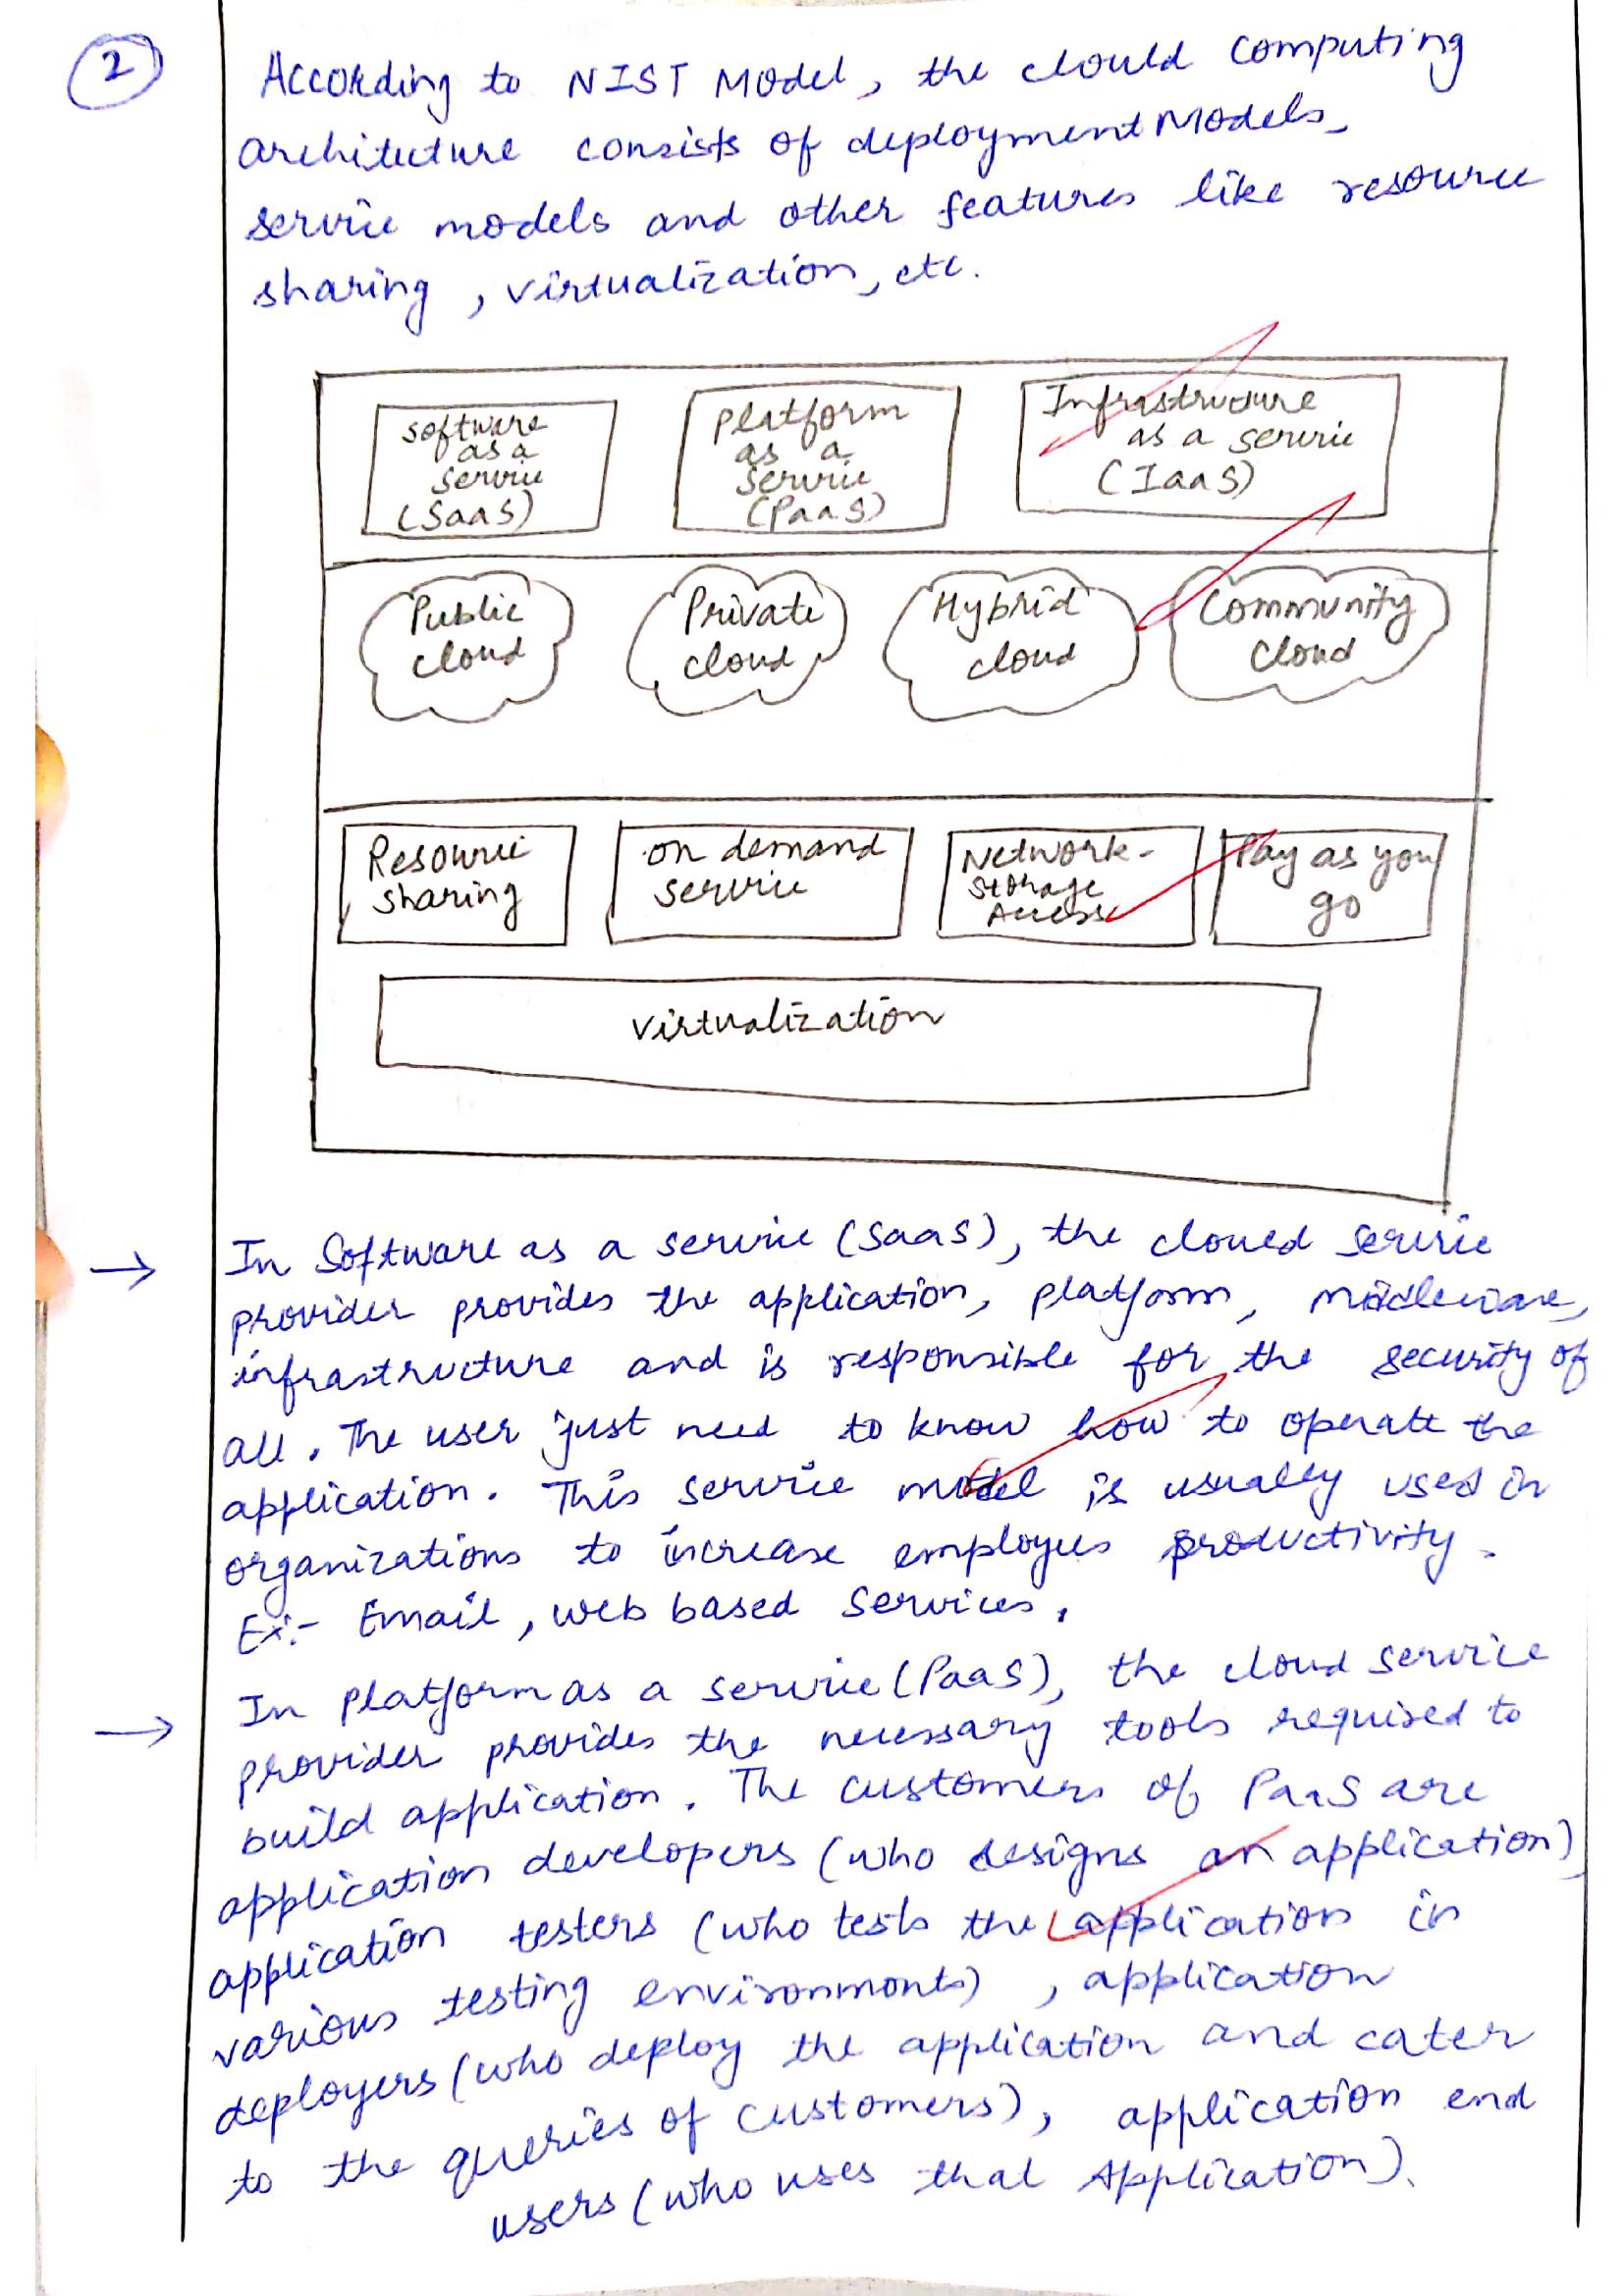 2
According to NIST Model, the clould computing
architecture consists of deployment Models,
service models and other features like resource
sharing, virtualization, etc.
software as a service (SaaS)
platform as a service (PaaS)
Infrastructure as a service (IaaS)
Public cloud
Private cloud
Hybrid cloud
Community cloud
Resource sharing
on demand service
Network-storage Access
Pay as you go
virtualization
→ In Software as a service (SaaS), the cloued service
provider provides the application, platform, middleware,
infrastructure and is responsible for the security of
all. The user just need to know how to operate the
application. This service model is usually used in
organizations to increase employees productivity.
Ex:- Email, web based services.
→ In platform as a service (PaaS), the cloud service
provider provides the necessary tools required to
build application. The customers of PaaS are
application developers (who designs an application),
application testers (who tests the application in
various testing environments), application
deployers (who deploy the application and cater
to the queries of customers), application end
users (who uses that Application).